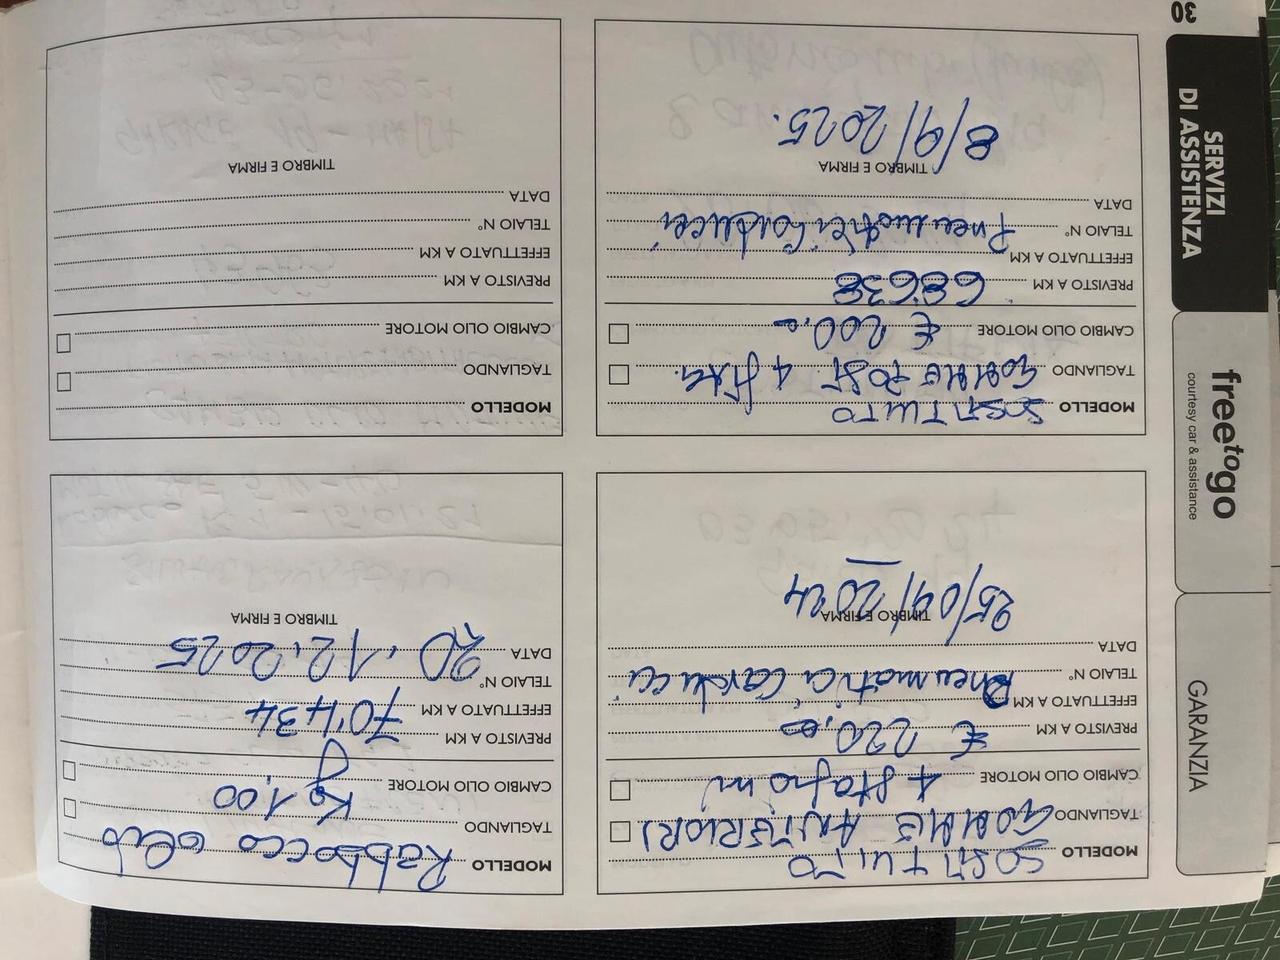 GARANZIA
freetogo
courtesy car & assistance
SERVIZI
DI ASSISTENZA
30
MODELLO SOSTITUITO
TAGLIANDO GOMME ANTERIORI
CAMBIO OLIO MOTORE 4 stagioni
PREVISTO A KM € 220,00
EFFETTUATO A KM Pneumatici Carducci
TELAIO N°
DATA
TIMBRO E FIRMA
MODELLO Rabbocco olio
TAGLIANDO Kg 1,00
CAMBIO OLIO MOTORE
PREVISTO A KM 70'434
EFFETTUATO A KM
TELAIO N°
DATA 20.12.2025
TIMBRO E FIRMA
MODELLO SOSTITUITO
TAGLIANDO GOMME POST. 4
CAMBIO OLIO MOTORE € 200,00
PREVISTO A KM 68638
EFFETTUATO A KM
TELAIO N° Pneumatici Carducci
DATA
TIMBRO E FIRMA
8/9/2025.
MODELLO
TAGLIANDO
CAMBIO OLIO MOTORE
PREVISTO A KM
EFFETTUATO A KM
TELAIO N°
DATA
TIMBRO E FIRMA